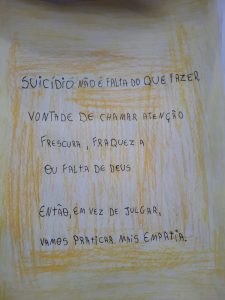 SUICÍDIO NÃO É FALTA DO QUE FAZER
VONTADE DE CHAMAR ATENÇÃO
FRESCURA, FRAQUEZA
OU FALTA DE DEUS
ENTÃO, EM VEZ DE JULGAR,
VAMOS PRATICAR MAIS EMPATIA.